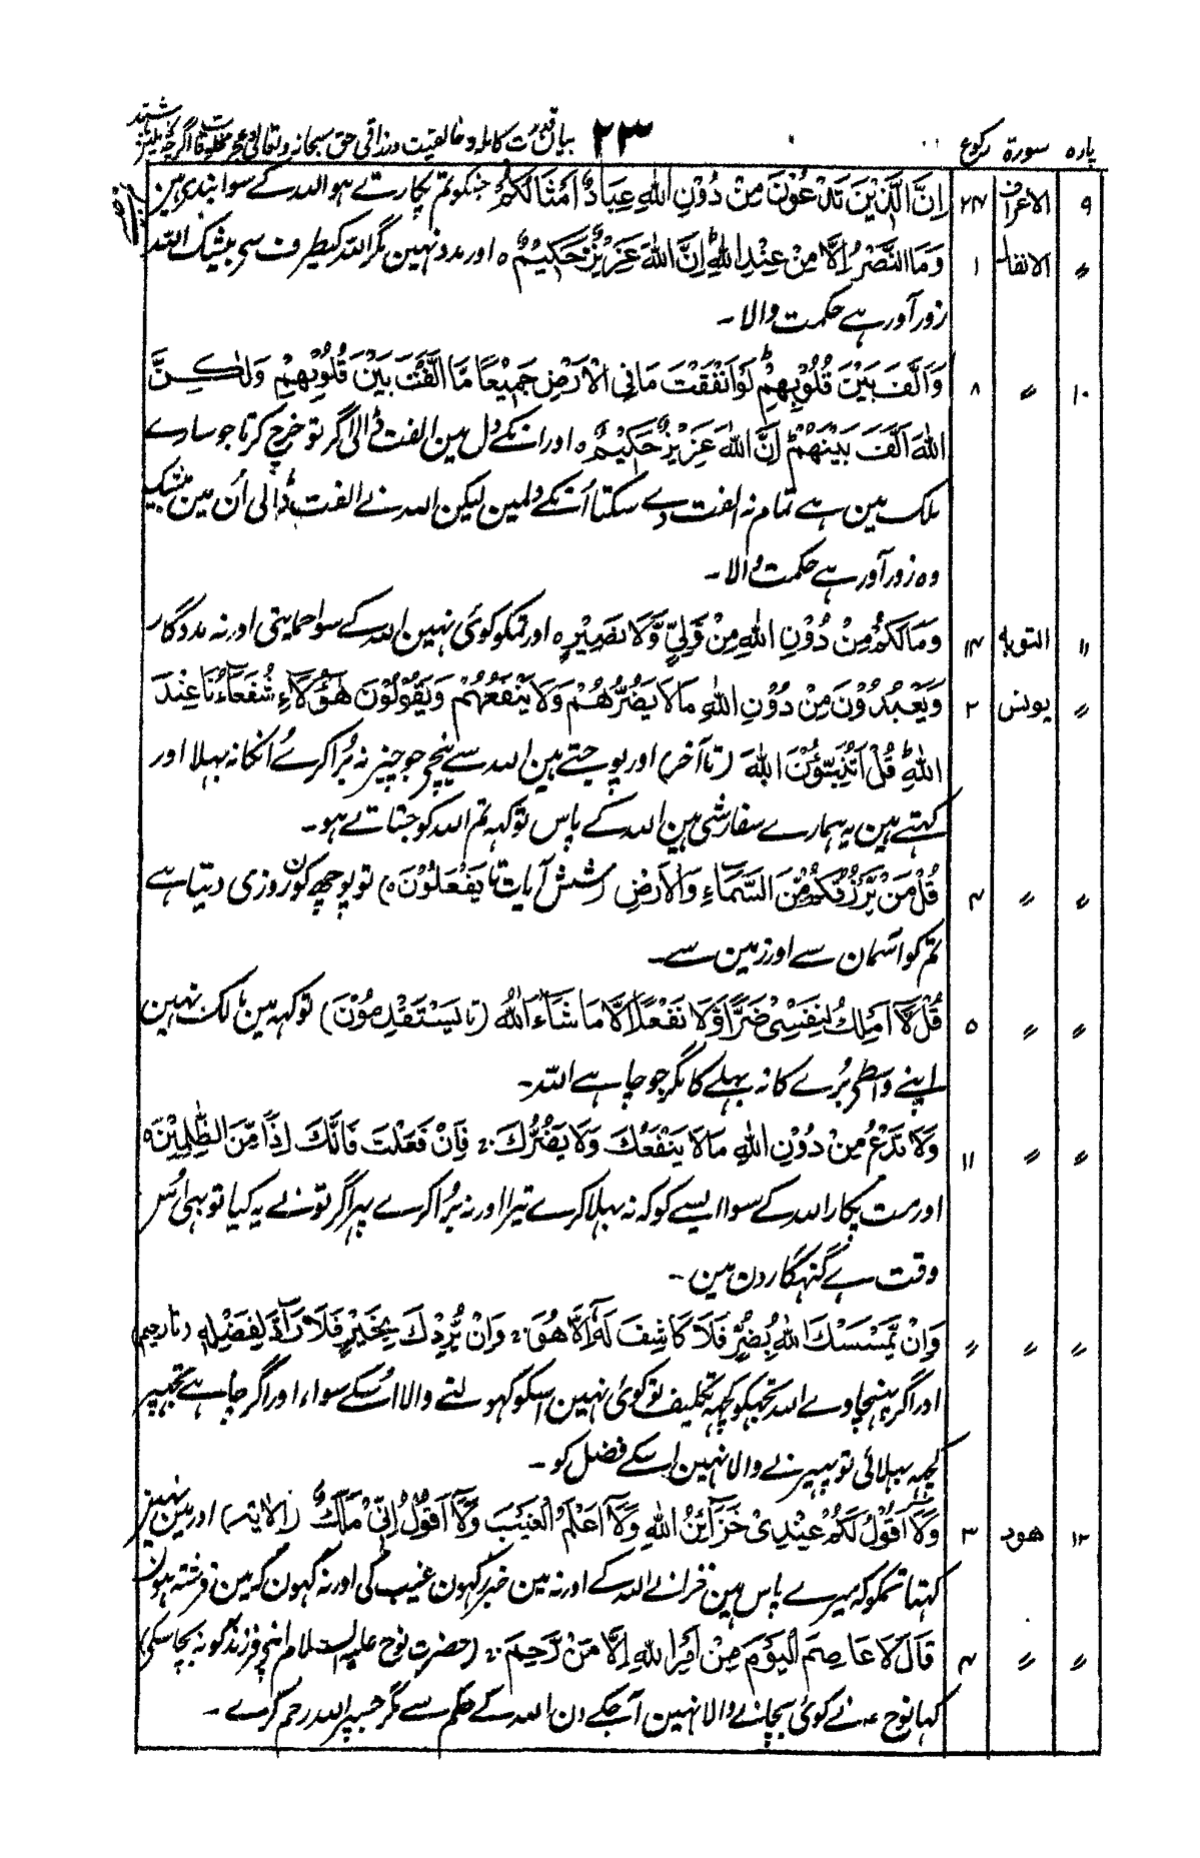 پارہ سورۃ رکوع ۲۳ بیان قدرت کاملہ و خالقیت و رزاقی حق سبحانہ و تعالیٰ و عجز مخلوقات اگرچہ باشند
۹ الاعراف ۲۴ اِنَّ الَّذِیْنَ تَدْعُوْنَ مِنْ دُوْنِ اللّٰہِ عِبَادٌ اَمْثَالُکُمْ جنکو تم پکارتے ہو اللہ کے سوا بندی ہین
〃 الانفال ۱ وَمَا النَّصْرُ اِلَّا مِنْ عِنْدِ اللّٰہِ اِنَّ اللّٰہَ عَزِیْزٌ حَکِیْمٌ ہ اور مدد نہین مگر اللہ کیطرف سی بیشک اللہ
زور آور ہے حکمت والا ۔
۱۰ 〃 ۸ وَاَلَّفَ بَیْنَ قُلُوْبِہِمْ لَوْ اَنْفَقْتَ مَا فِی الْاَرْضِ جَمِیْعًا مَّا اَلَّفْتَ بَیْنَ قُلُوْبِہِمْ وَلٰکِنَّ
اللّٰہَ اَلَّفَ بَیْنَہُمْ اِنَّ اللّٰہَ عَزِیْزٌ حَکِیْمٌ ہ اور انکے دل مین الفت ڈالی اگر تو خرچ کرتا جو سارے
ملک مین ہے تمام نہ الفت دے سکتا اُنکے دلمین لیکن اللہ نے الفت ڈالی اُن مین بیشک
وہ زور آور ہے حکمت والا ۔
۱۱ التوبہ ۱۴ وَمَا لَکُمْ مِنْ دُوْنِ اللّٰہِ مِنْ وَّلِیٍّ وَّلَا نَصِیْرٍ ہ اور تمکو کوئی نہین اللہ کے سوا حمایتی اور نہ مددگار
〃 یونس ۲ وَیَعْبُدُوْنَ مِنْ دُوْنِ اللّٰہِ مَا لَا یَضُرُّہُمْ وَلَا یَنْفَعُہُمْ وَیَقُوْلُوْنَ ہٰٓؤُلَآءِ شُفَعَآؤُنَا عِنْدَ
اللّٰہِ قُلْ اَتُنَبِّئُوْنَ اللّٰہَ (تا آخر) اور پوجتے ہین اللہ سے نیچی جو چیز نہ بُرا کرے اُنکا نہ بہلا اور
کہتے ہین یہ ہمارے سفارشی ہین اللہ کے پاس تو کہہ تم اللہ کو جتاتے ہو ۔
〃 〃 ۴ قُلْ مَنْ یَّرْزُقُکُمْ مِّنَ السَّمَآءِ وَالْاَرْضِ (شش آیات تا یَفْعَلُوْنَ ہ) تو پوچھ کون روزی دیتا ہے
تم کو آسمان سے اور زمین سے ۔
〃 〃 ۵ قُلْ لَّآ اَمْلِکُ لِنَفْسِیْ ضَرًّا وَّلَا نَفْعًا اِلَّا مَا شَآءَ اللّٰہُ (تا یَسْتَقْدِمُوْنَ) تو کہہ مین مالک نہین
اپنے واسطی بُرے کا نہ بہلے کا مگر جو چاہے اللہ ۔
〃 〃 ۱۱ وَلَا تَدْعُ مِنْ دُوْنِ اللّٰہِ مَا لَا یَنْفَعُکَ وَلَا یَضُرُّکَ فَاِنْ فَعَلْتَ فَاِنَّکَ اِذًا مِّنَ الظّٰلِمِیْنَ ہ
اور مت پکار اللہ کے سوا ایسے کو کہ نہ بہلا کرے تیرا اور نہ بُرا کرے پہر اگر تو نے یہ کیا تو بہی اُس
وقت ہے گنہگارون مین ۔
〃 〃 〃 وَاِنْ یَّمْسَسْکَ اللّٰہُ بِضُرٍّ فَلَا کَاشِفَ لَہٗٓ اِلَّا ہُوَ وَاِنْ یُّرِدْکَ بِخَیْرٍ فَلَا رَآدَّ لِفَضْلِہٖ (تا رحیم)
اور اگر پہنچاوے اللہ تجہکو کچہہ تکلیف تو کوئی نہین اسکو کہولنے والا اُسکے سواء اور اگر چاہے تجہپر
کچہہ بہلائی تو پہیرنے والا نہین اسکے فضل کو ۔
۱۲ ہود ۳ وَلَآ اَقُوْلُ لَکُمْ عِنْدِیْ خَزَآئِنُ اللّٰہِ وَلَآ اَعْلَمُ الْغَیْبَ وَلَآ اَقُوْلُ اِنِّیْ مَلَکٌ (الایتہ) اور مین نہین
کہتا تمکو کہ میرے پاس ہین خزانے اللہ کے اور نہ مین خبر کہون غیب کی اور نہ کہون کہ مین فرشتہ ہون
〃 〃 ۴ قَالَ لَا عَاصِمَ الْیَوْمَ مِنْ اَمْرِ اللّٰہِ اِلَّا مَنْ رَّحِمَ (حضرت نوح علیہ السلام اپنی فرزند کو نہ بچا سکی)
کہا نوح ؑ نے کوئی بچانے والا نہین آجکے دن اللہ کے حکم سے مگر جسپر اللہ رحم کرے ۔